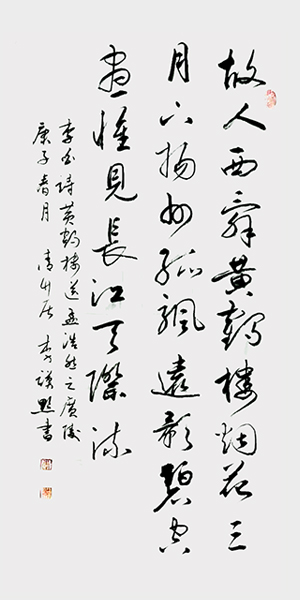 故人西辭黄鶴樓烟花三
月下揚州孤颿遠影碧空
盡惟見長江天際流
李白詩黄鶴樓送孟浩然之廣陵
庚子春月 清竹居 李 書